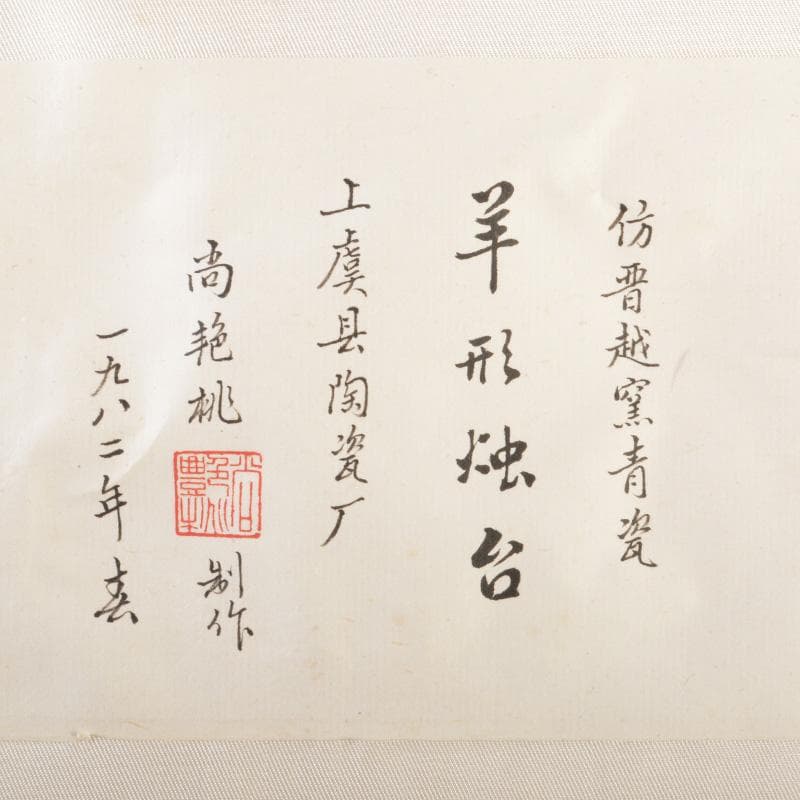 仿晋越窑青瓷
羊形烛台
上虞县陶瓷厂
尚艳桃 制作
一九八二年春